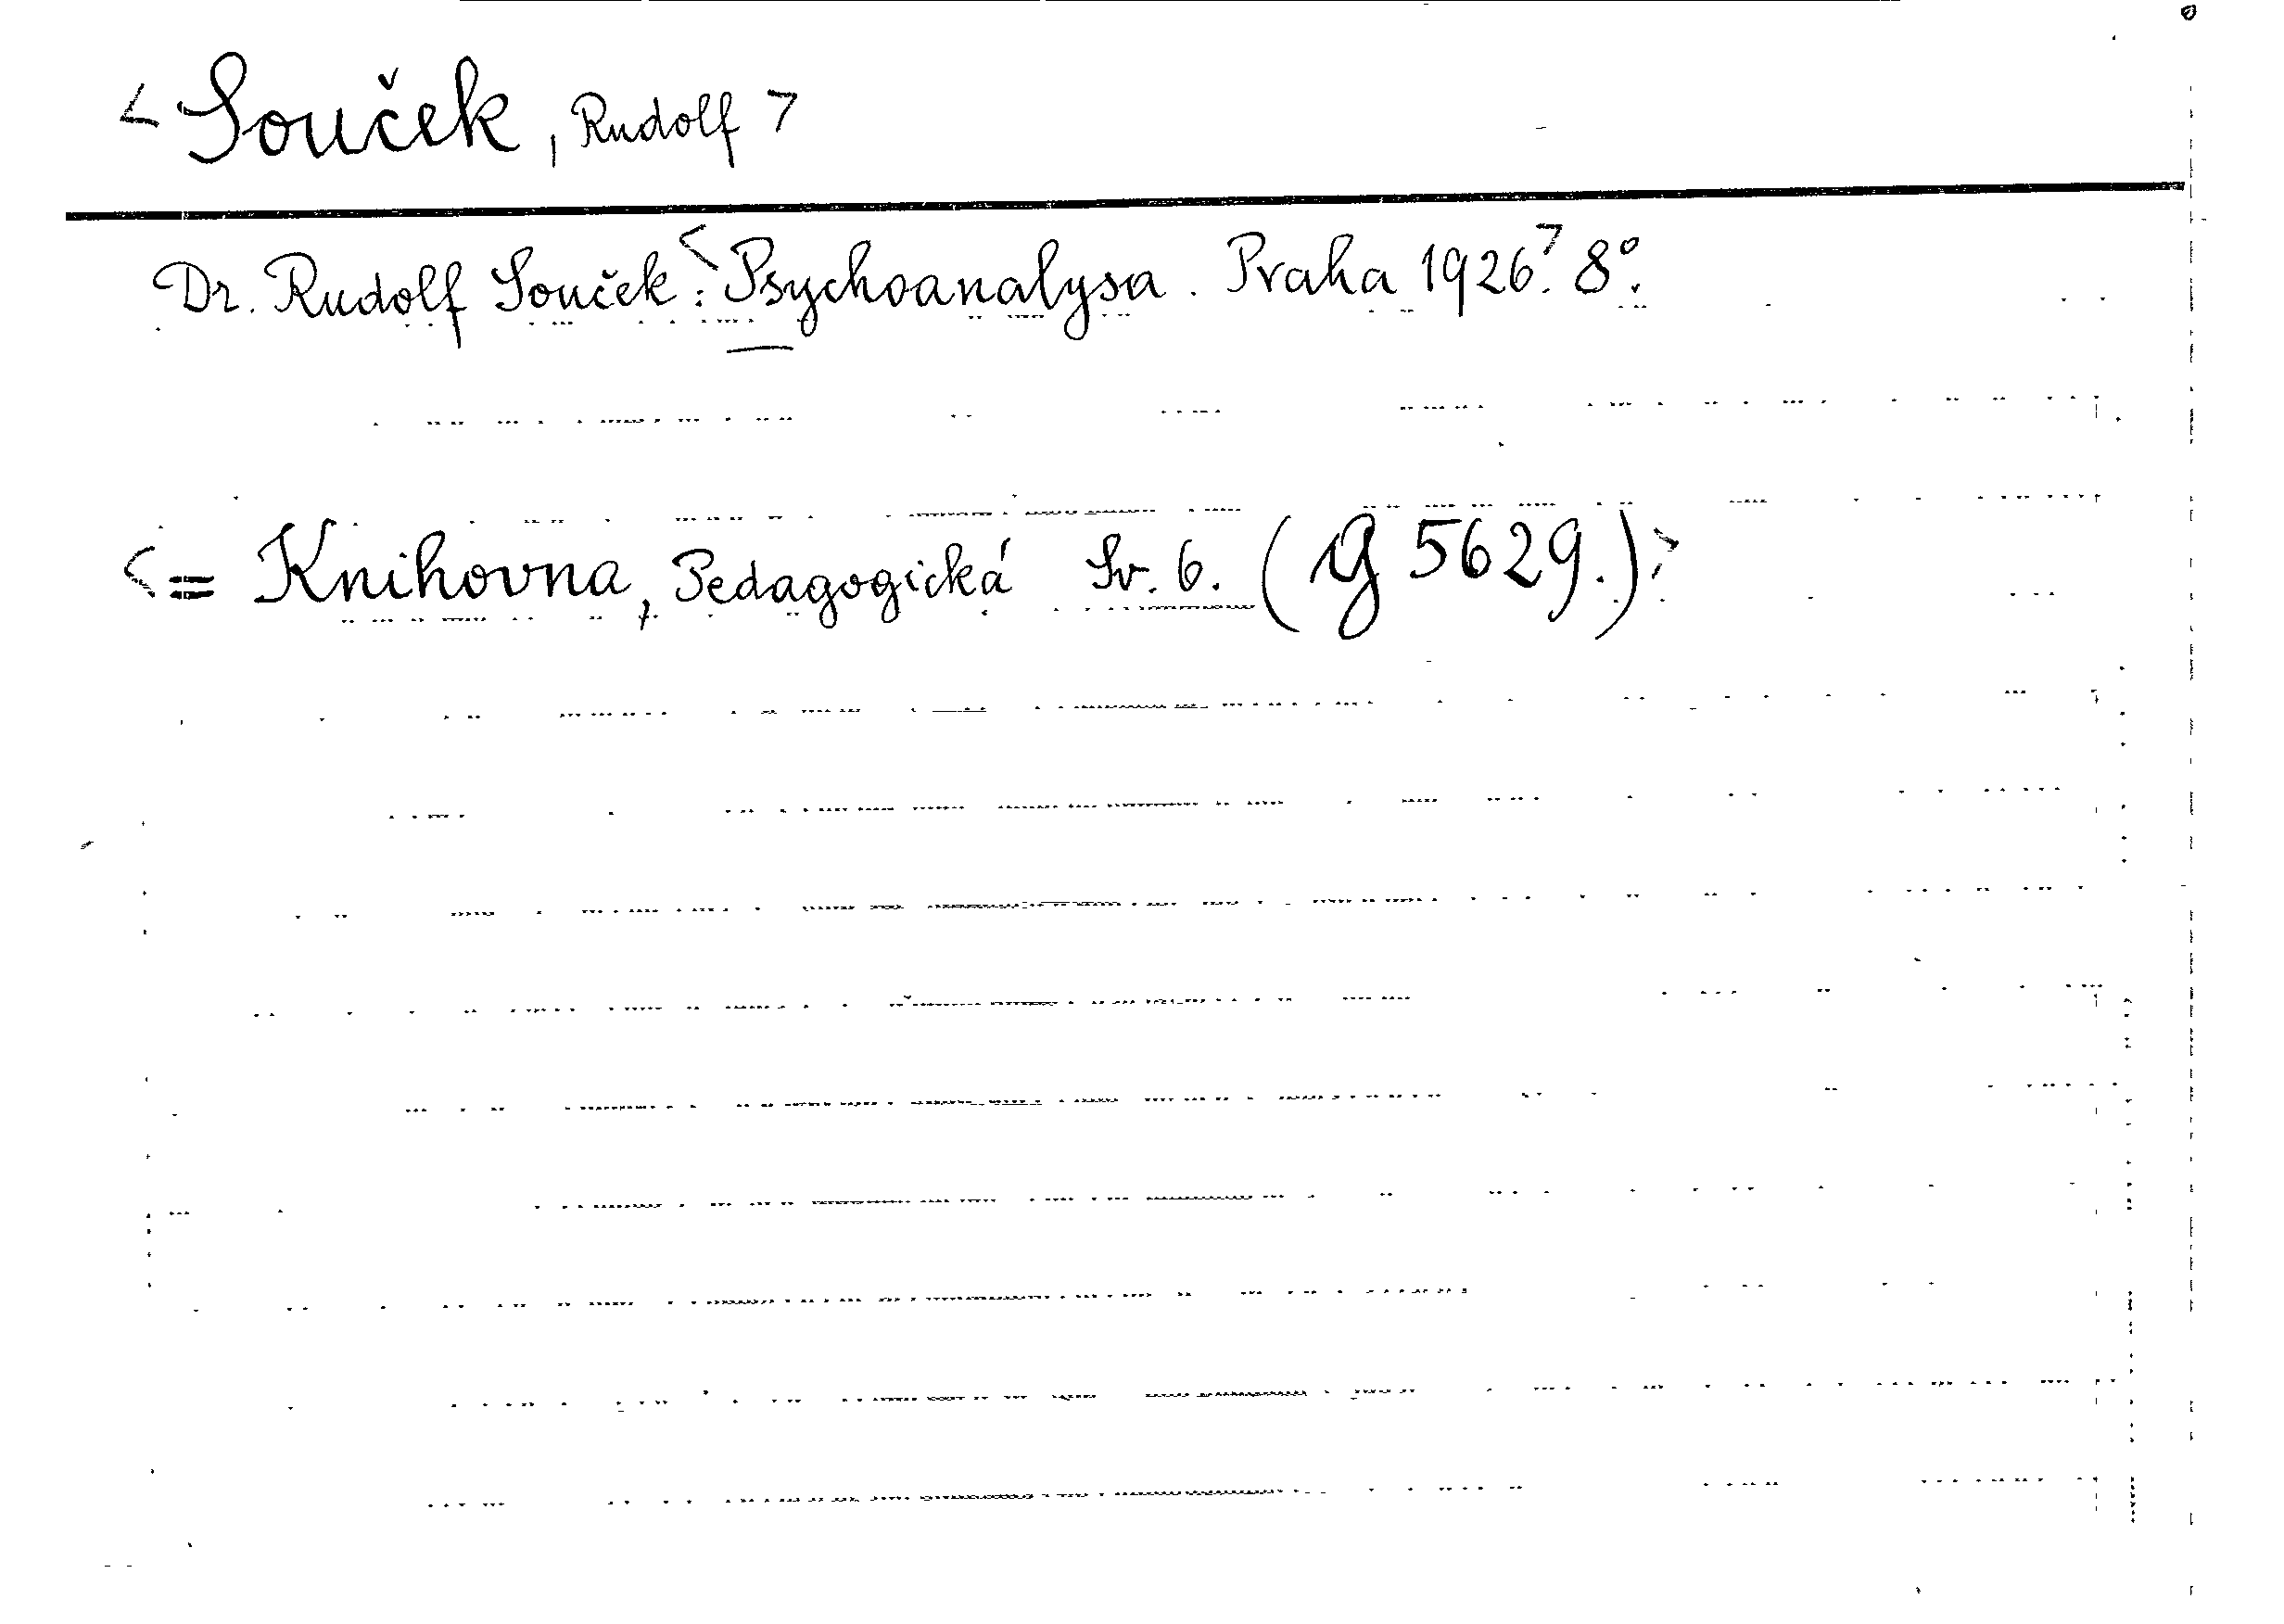 < Souček, Rudolf >
Dr. Rudolf Souček: <Psychoanalysa. Praha 1926.> 8°.
<= Knihovna, Pedagogická Sv. 6. (G 5629.)>